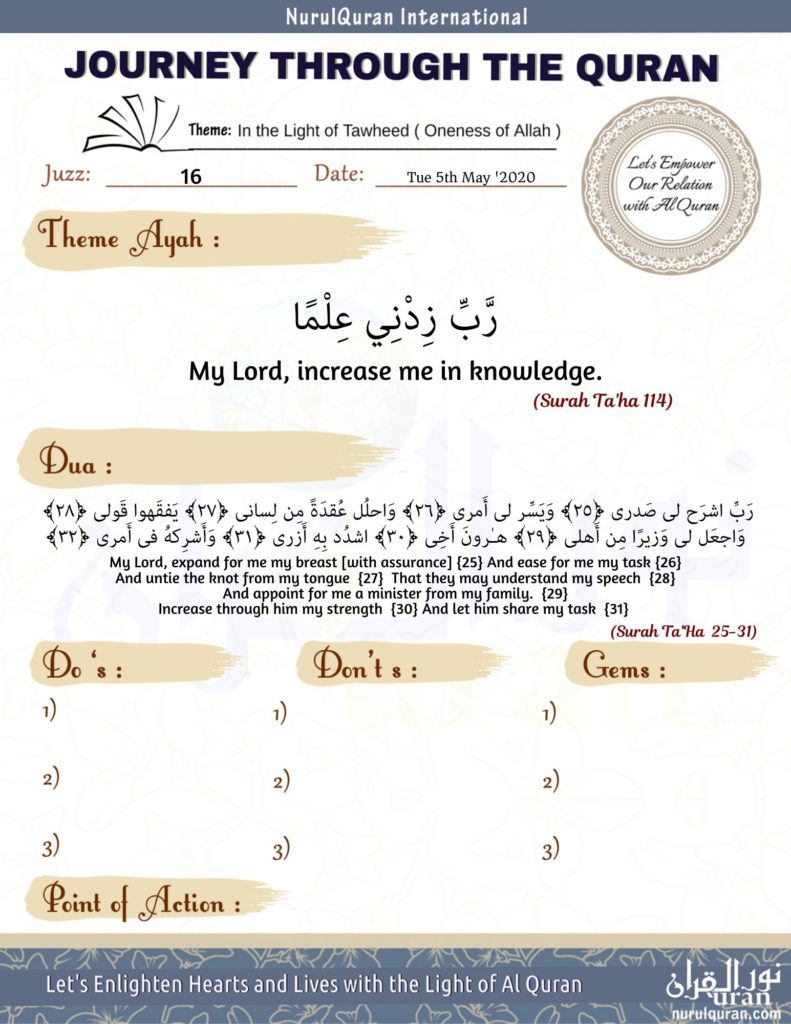 NurulQuran International
JOURNEY THROUGH THE QURAN
Theme: In the Light of Tawheed ( Oneness of Allah )
Let's Empower
Our Relation
with Al Quran
Juzz: 16 Date: Tue 5th May '2020
Theme Ayah :
رَّبِّ زِدْنِي عِلْمًا
My Lord, increase me in knowledge.
(Surah Ta'ha 114)
Dua :
رَبِّ اشرَح لى صَدرى ﴿٢٥﴾ وَيَسِّر لى أَمرى ﴿٢٦﴾ وَاحلُل عُقدَةً مِن لِسانى ﴿٢٧﴾ يَفقَهوا قَولى ﴿٢٨﴾
وَاجعَل لى وَزيرًا مِن أَهلى ﴿٢٩﴾ هـٰرونَ أَخِى ﴿٣٠﴾ اشدُد بِهِ أَزرى ﴿٣١﴾ وَأَشرِكهُ فى أَمرى ﴿٣٢﴾
My Lord, expand for me my breast [with assurance] {25} And ease for me my task {26}
And untie the knot from my tongue {27} That they may understand my speech {28}
And appoint for me a minister from my family. {29}
Increase through him my strength {30} And let him share my task {31}
(Surah Ta'Ha 25-31)
Do 's :
Don't s :
Gems :
1)
1)
1)
2)
2)
2)
3)
3)
3)
Point of Action :
Let's Enlighten Hearts and Lives with the Light of Al Quran
نور القرآن
uran
nurulquran.com